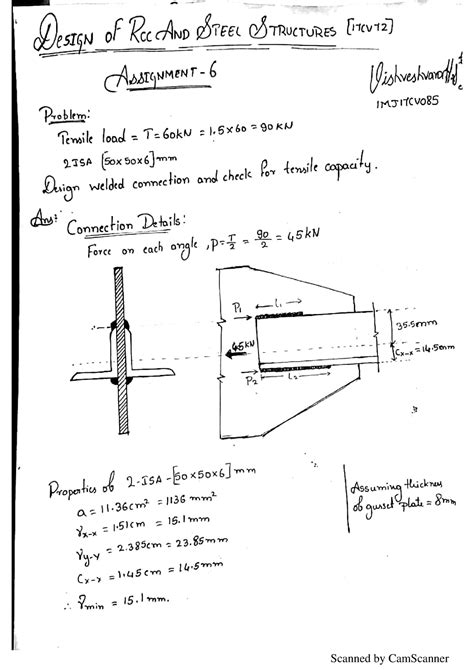 DESIGN of RCC AND STEEL STRUCTURES [17CV72]
ASSIGNMENT-6
1MJ17CV085
Problem:
Tensile load = T = 60kN = 1.5x60 = 90kN
2ISA [50x50x6] mm
Design welded connection and check for tensile capacity.
Ans: Connection Details:
Force on each angle, P = T/2 = 90/2 = 45kN
P1
L1
35.5mm
45kN
Cx-x = 14.5mm
P2
L2
Properties of 2-ISA-[50x50x6] mm
a = 11.36cm² = 1136 mm²
γx-x = 1.51cm = 15.1mm
γy-y = 2.385cm = 23.85mm
Cx-x = 1.45cm = 14.5mm
∴ γmin = 15.1mm.
Assuming thickness
of gusset plate = 8mm
Scanned by CamScanner